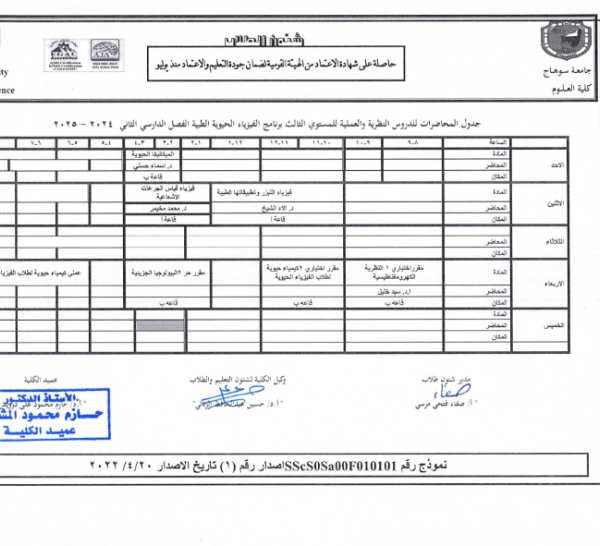 شئون الطلاب
حاصلة على شهادة الاعتماد من الهيئة القومية لضمان جودة التعليم والاعتماد منذ يوليو
جامعة سوهاج
كلية العلوم
جدول المحاضرات للدروس النظرية والعملية للمستوي الثالث برنامج الفيزياء الحيوية الطبية الفصل الدارسي الثاني ٢٠٢٤ - ٢٠٢٥
الساعة ٨-٩ ٩-١٠ ١٠-١١ ١١-١٢ ١٢-١ ١-٢ ٢-٣ ٣-٤ ٤-٥ ٥-٦ ٦-٧
الاحد المادة الميكانيكا الحيوية
المحاضر د. اسماء حسني
المكان قاعة ب
الاثنين المادة فيزياء الليزر وتطبيقاتها الطبية فيزياء قياس الجرعات الاشعاعية
المحاضر د. الاء الشيخ د. محمد مخيمر
المكان قاعة ا قاعة ا
الثلاثاء
المحاضر
المكان
الاربعاء المادة مقرر اختياري ١ النظرية الكهرومغناطيسية مقرر اختياري ٢ كيمياء حيوية لطلاب الفيزياء الحيوية مقرر حر ٢ البيولوجيا الجزيئية عملي كيمياء حيوية لطلاب الفيزيا
المحاضر ا.د. سيد خليل
المكان قاعة ب قاعة ب قاعة ب
الخميس المادة
المحاضر
المكان
مدير شئون طلاب وكيل الكلية لشئون التعليم والطلاب عميد الكلية
أ/ صفاء فتحي مرسي
الأستاذ الدكتور
حازم محمود
عميد الكلية
نموذج رقم SScS0Sa00F010101 اصدار رقم (١) تاريخ الاصدار ٢٠/٤/٢٠٢٢